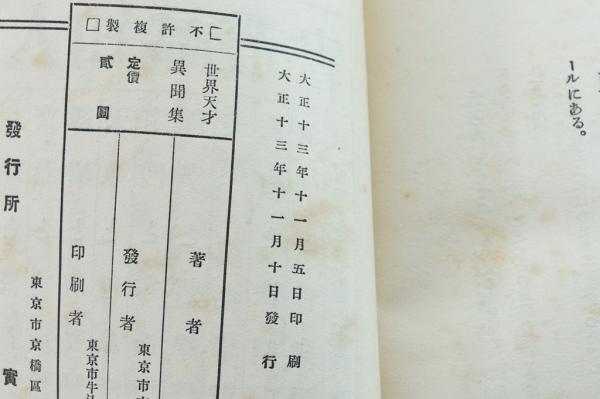 ールにある。
大正十三年十一月五日印刷
大正十三年十一月十日發行
不許複製
世界天才
異聞集
定價
貳圓
著者
發行者
東京市
印刷者
東京市牛込
東京市京橋區
發行所
實